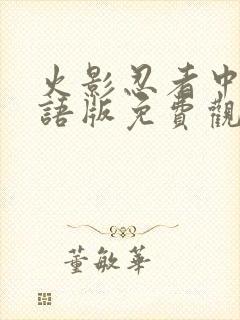 火影忍者中
語版免費觀
董敏華